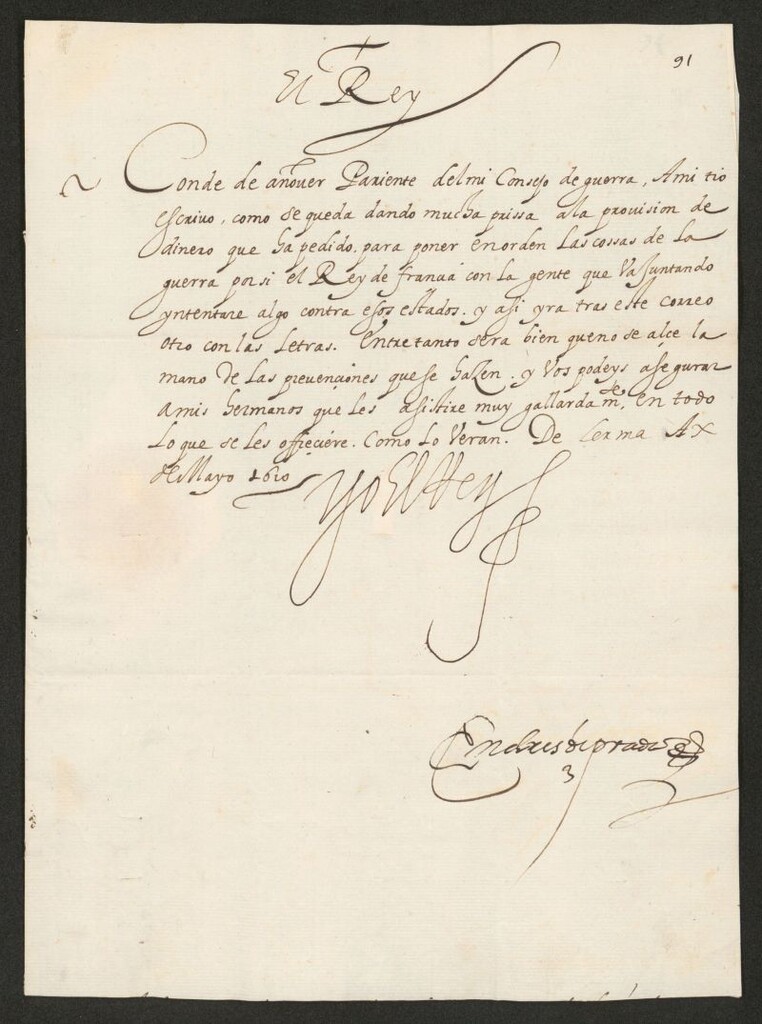 91
El Rey
Conde de añover Pariente del mi Consejo de guerra, Ami tio
escrivo, como se queda dando mucha prissa ala provision de
dinero que ha pedido. para poner en orden Las cossas de La
guerra por si el Rey de francia con la gente que Va Juntando
yntentare algo contra esos estados. y asi yra tras este correo
otro con las Letras. Entretanto sera bien que no se alce la
mano de Las prevenciones que se hazen. y Vos podeys asegurar
Amis hermanos que les asistire muy gallardamte. en todo
Lo que se les offreciere. Como Lo Veran. De Lerma A X
de Mayo 1610
Yo El Rey
Andres de prada
3